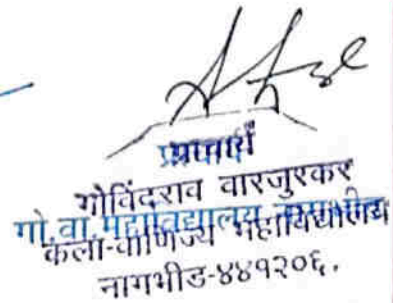 प्राचार्य
गोविंदराव वारजुरकर
गो.वा.महाविद्यालय नागभीड
कला-वाणिज्य महाविद्यालय
नागभीड-४४१२०६.